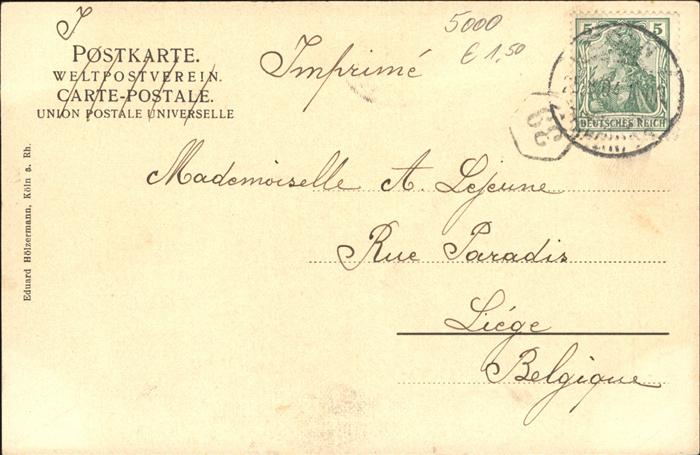 5000
€ 1,50
POSTKARTE.
WELTPOSTVEREIN.
CARTE-POSTALE.
UNION POSTALE UNIVERSELLE
Imprimé
5 5
DEUTSCHES REICH
39
Mademoiselle A. Lejeune
Rue Paradis
Liége
Belgique
Eduard Hölzermann, Köln a. Rh.